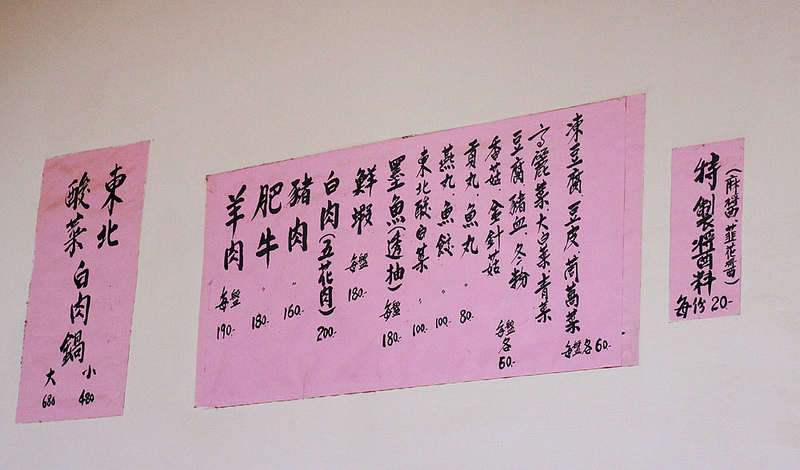 特製醬料
(麻醬、韮花醬)
每份 20-
凍豆腐 豆皮 茼萵菜 每盤各 60.-
高麗菜 大白菜 青菜
豆腐 豬血 冬粉
香菇 金針菇
每盤各 50.-
貢丸、魚丸 〃 80.-
燕丸、魚餃 〃 100.-
東北酸白菜 〃 100.-
墨魚(透抽) 每盤 180.-
鮮蝦 每盤 180.-
白肉(五花肉) 200.-
豬肉 〃 160.-
肥牛 〃 180.-
羊肉 每盤 190.-
東北
酸菜白肉鍋
小 480
大 680